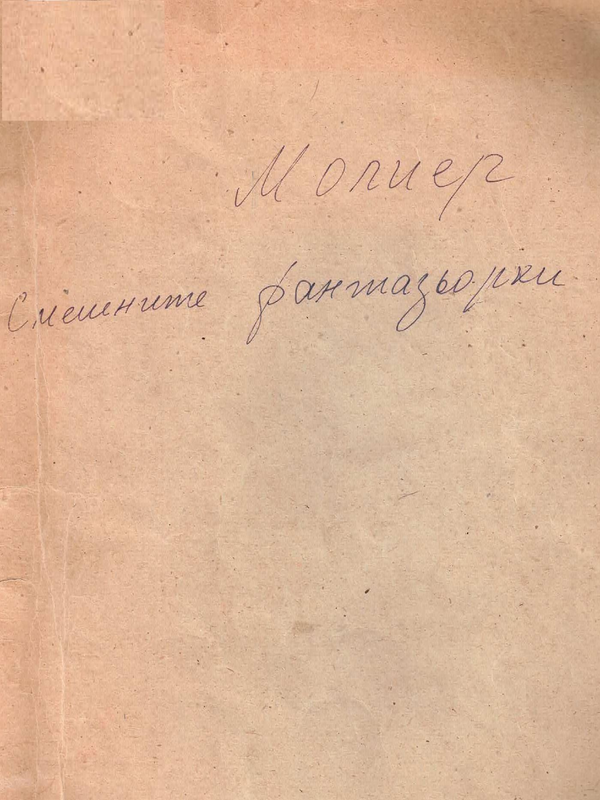 Молиер
Смешните фантазьорки